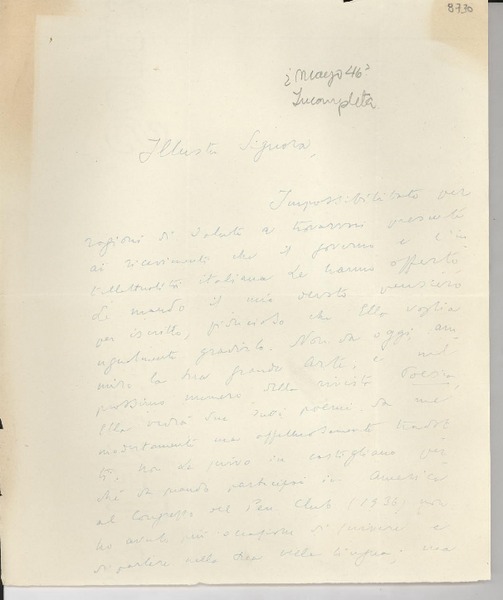 8730
¿Mayo 46?
Incompleta
Illustre Signora,
Impossibilitato per
ragioni di salute a trovarmi presente
ai ricevimenti che il governo e l'in
tellettualità italiana Le hanno offerto
Le mando il mio pensiero
per iscritto, che Ella voglia
ugualmente gradirlo. Non da oggi am
miro la Sua grande Arte, e nel
prossimo numero della rivista Poesia,
Ella vedrà due Suoi poemi da me
modestamente ma affettuosamente tradot
ti. Non Le scrivo in castigliano per
ché da quando partecipai in America
al Congresso del Pen Club (1936) non
ho avuto più occasione di scrivere e
di parlare nella Sua bella lingua; ma